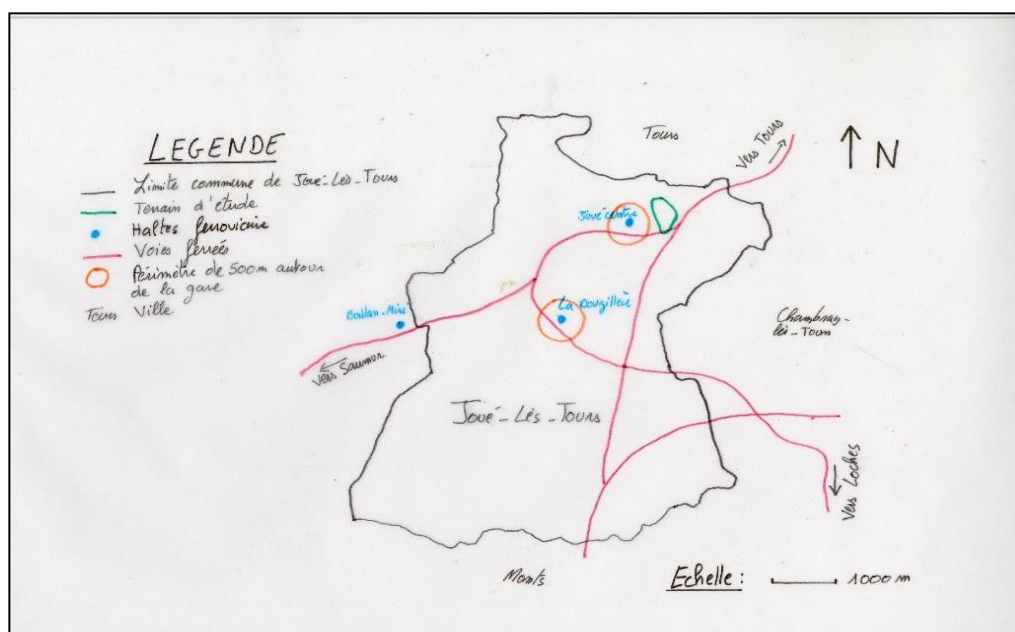 LEGENDE
Limite commune de Joué-Lès-Tours
Terrain d'étude
Haltes ferroviaire
Voies ferrées
Périmètre de 500m autour
de la gare
Tours Ville
Tours
vers Tours
N
Joué centre
La Douzillère
Ballan-Miré
vers Saumur
Chambray-
lès-Tours
Joué-Lès-Tours
vers Loches
Monts
Echelle : 1000 m